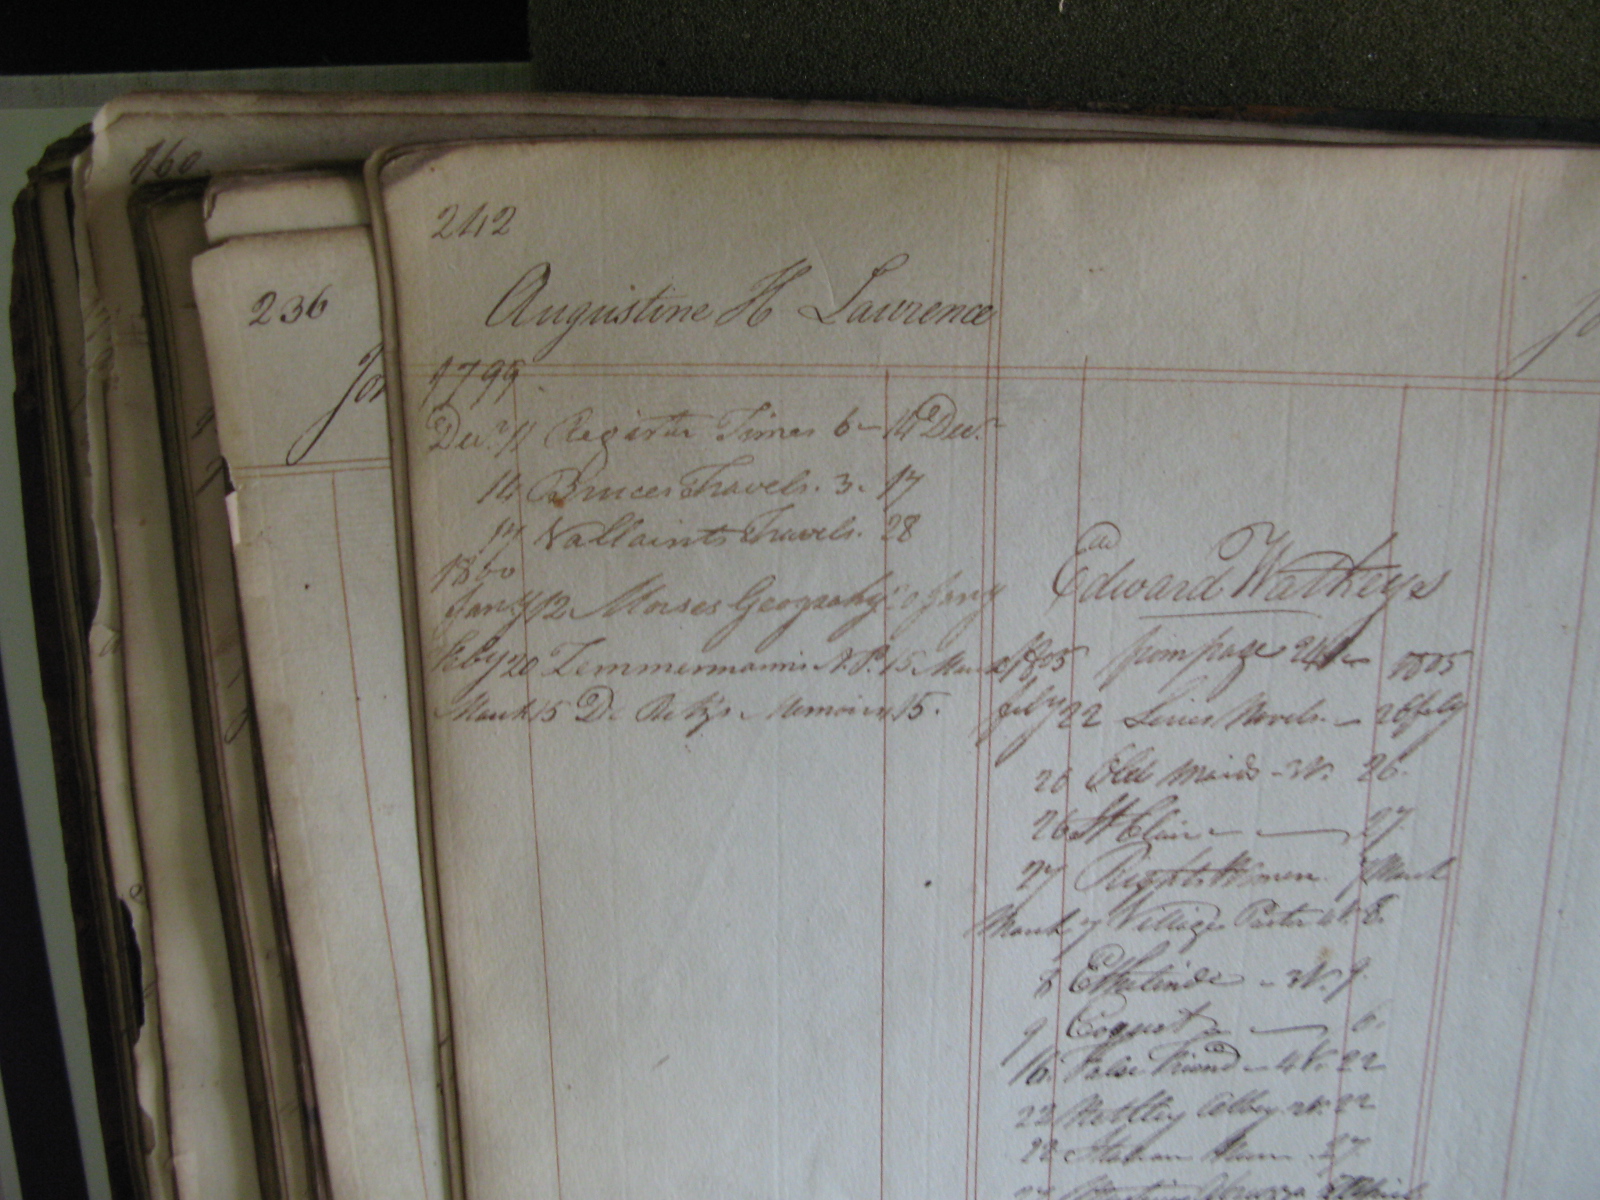 160
236
242
Augustine H Lawrence
1799
Decr. 11 Register Times 6 - 14 Decr.
14 Bruces Travels. 3. 17
17 Vallaints Travels. 28
1800
Jany 12 Morses Geography 20 Jany
Feby 20 Zemmermanns 15 March
March 15 De Retz's Memoirs 15.
Edward Watkeys
1805 from page 241 1805
feby 22 Novels. - 26 feby
26 Old Maids - 3V. 26.
26 St Clair - 27.
27 Rights Women. 7 March
March 7 Village Pastor 8.
8 Ethelinde - 3V. 9.
9 Coquet
16. False Friend - 4V. 22
22 Nethley Abbey 2V. 22
22 27